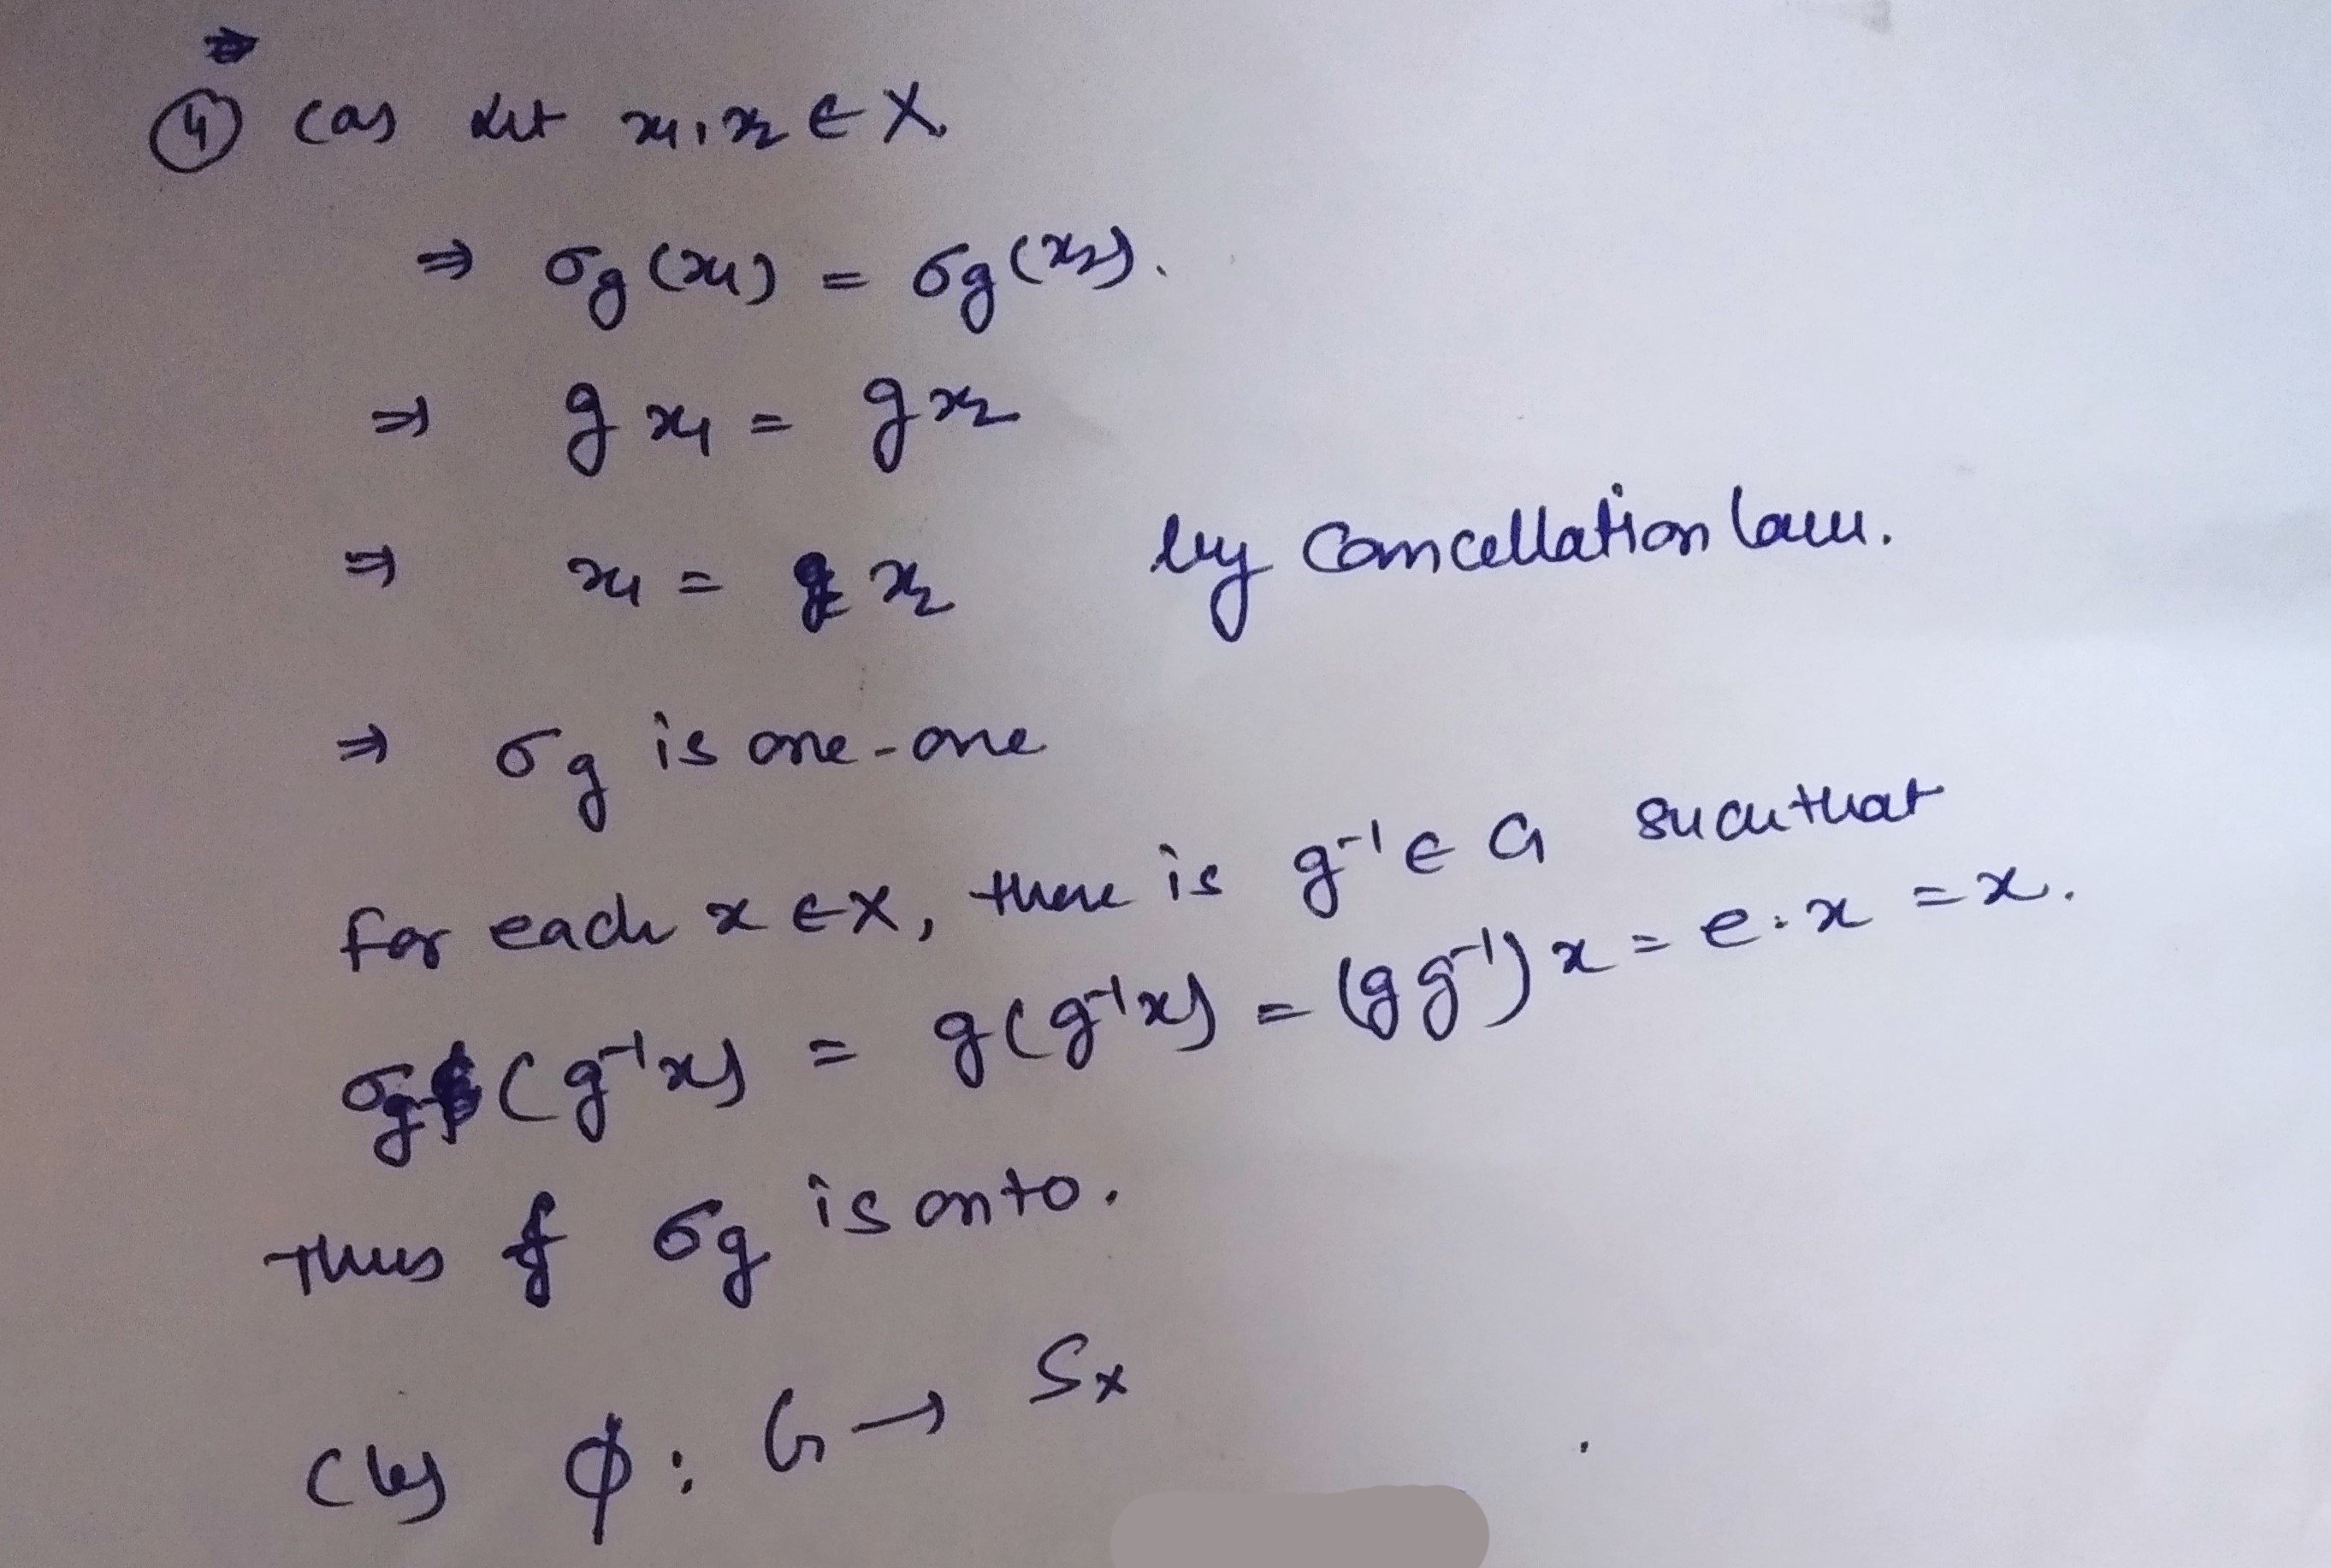 ④ (a) Let x₁, x₂ ∈ X
⇒ σg(x₁) = σg(x₂).
⇒ g x₁ = g x₂
⇒ x₁ = x₂ by cancellation law.
⇒ σg is one-one
for each x ∈ X, there is g⁻¹ ∈ G such that
σg(g⁻¹x) = g(g⁻¹x) = (gg⁻¹)x = e.x = x.
Thus σg is onto.
(b) ϕ : G → Sx